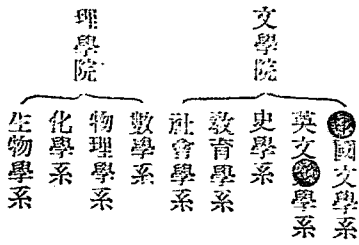 文學院
國文學系
英文學系
史學系
教育學系
社會學系
理學院
數學系
物理學系
化學系
生物學系